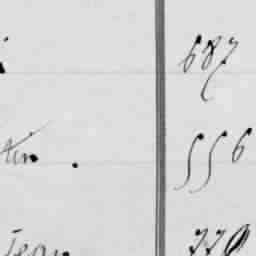 687
tin . 556
Jean 779